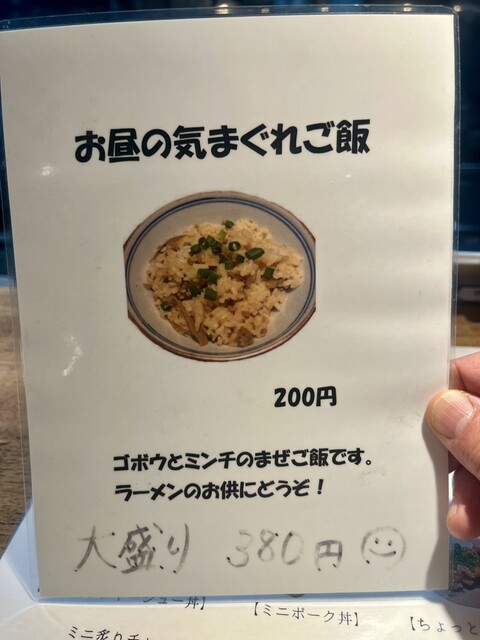 お昼の気まぐれご飯
200円
ゴボウとミンチのまぜご飯です。
ラーメンのお供にどうぞ！
大盛り 380円
シュー丼】
【ミニポーク丼】
【ちょっと
ミニ炙りチ